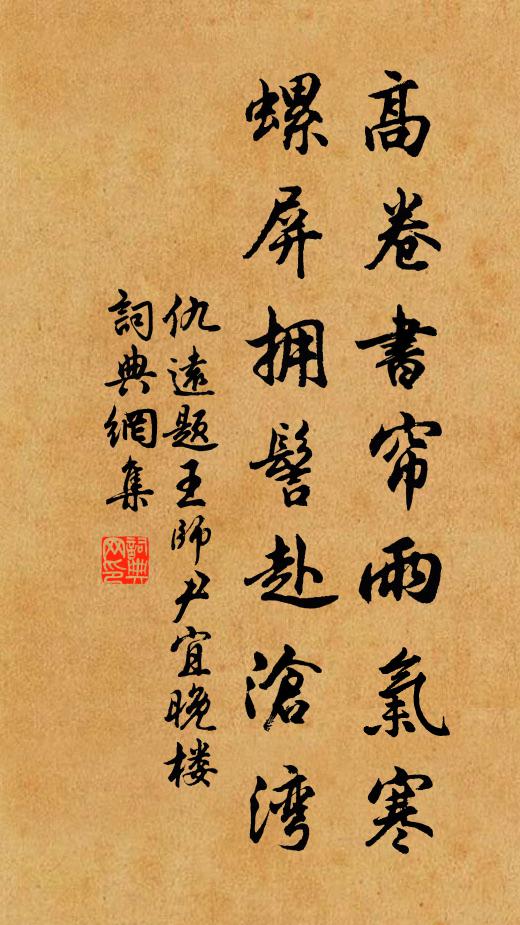 高卷書帘雨氣寒
螺屏拥髻赴滄湾
仇遠题王師尹宜晚楼
詞典網集
詞典网印